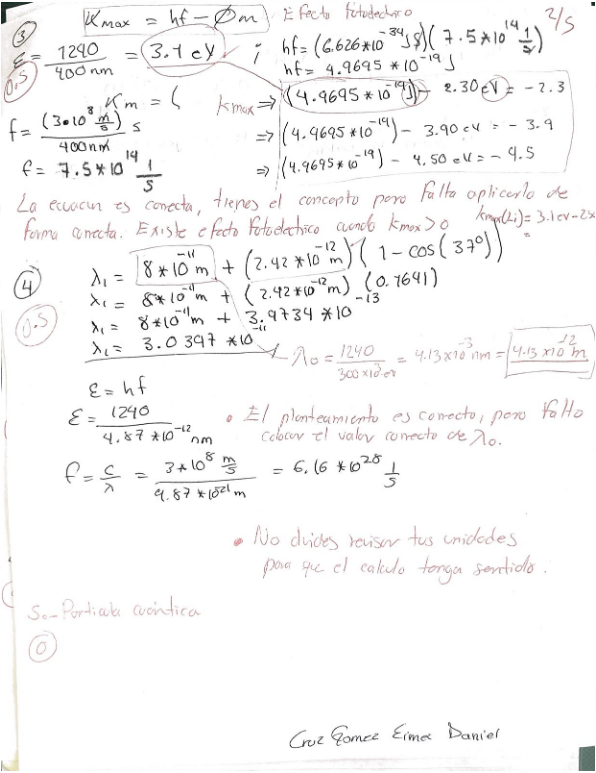 Kmax = hf - Øm
Efecto fotoelectrico
2/5
③
0.5
ε = 1240 / 400 nm = 3.1 eV ;
hf = (6.626*10^-34 J s)(7.5*10^14 1/s)
hf = 4.9695*10^-19 J
Km = (
Kmax ⇒ (4.9695*10^-19 J) - 2.30 eV = -2.3
f = (3*10^8 m/s) / 400nm s
⇒ (4.9695*10^-19) - 3.90 eV = -3.9
f = 7.5*10^14 1/s
⇒ (4.9695*10^-19) - 4.50 eV = -4.5
La ecuacion es correcta, tienes el concepto pero falta aplicarlo de
forma correcta. Existe efecto fotoelectrico cuando kmax>0
kmax(Li) = 3.1ev - 2
=
④
0.5
λ₁ = 8*10^-11 m + (2.42*10^-12 m)(1-cos(37°))
λ₁ = 8*10^-11 m + (2.42*10^-12 m)(0.7641)
λ₁ = 8*10^-11 m + 3.9734*10^-13
λ₁ = 3.0397*10^-11
λ₀ = 1240 / 300x10^3 ev = 4.13x10^-3 nm = 4.13x10^-12 m
ε = hf
ε = 1240 / 4.87*10^-12 nm
• El planteamiento es correcto, pero falto
colocar el valor correcto de λ₀.
f = c/λ = 3*10^8 m/s / 4.87*10^-21 m = 6.16*10^28 1/s
• No olvides revisar tus unidades
para que el calculo tenga sentido.
5.- Particula cuántica
0
Cruz Gomez Eimer Daniel